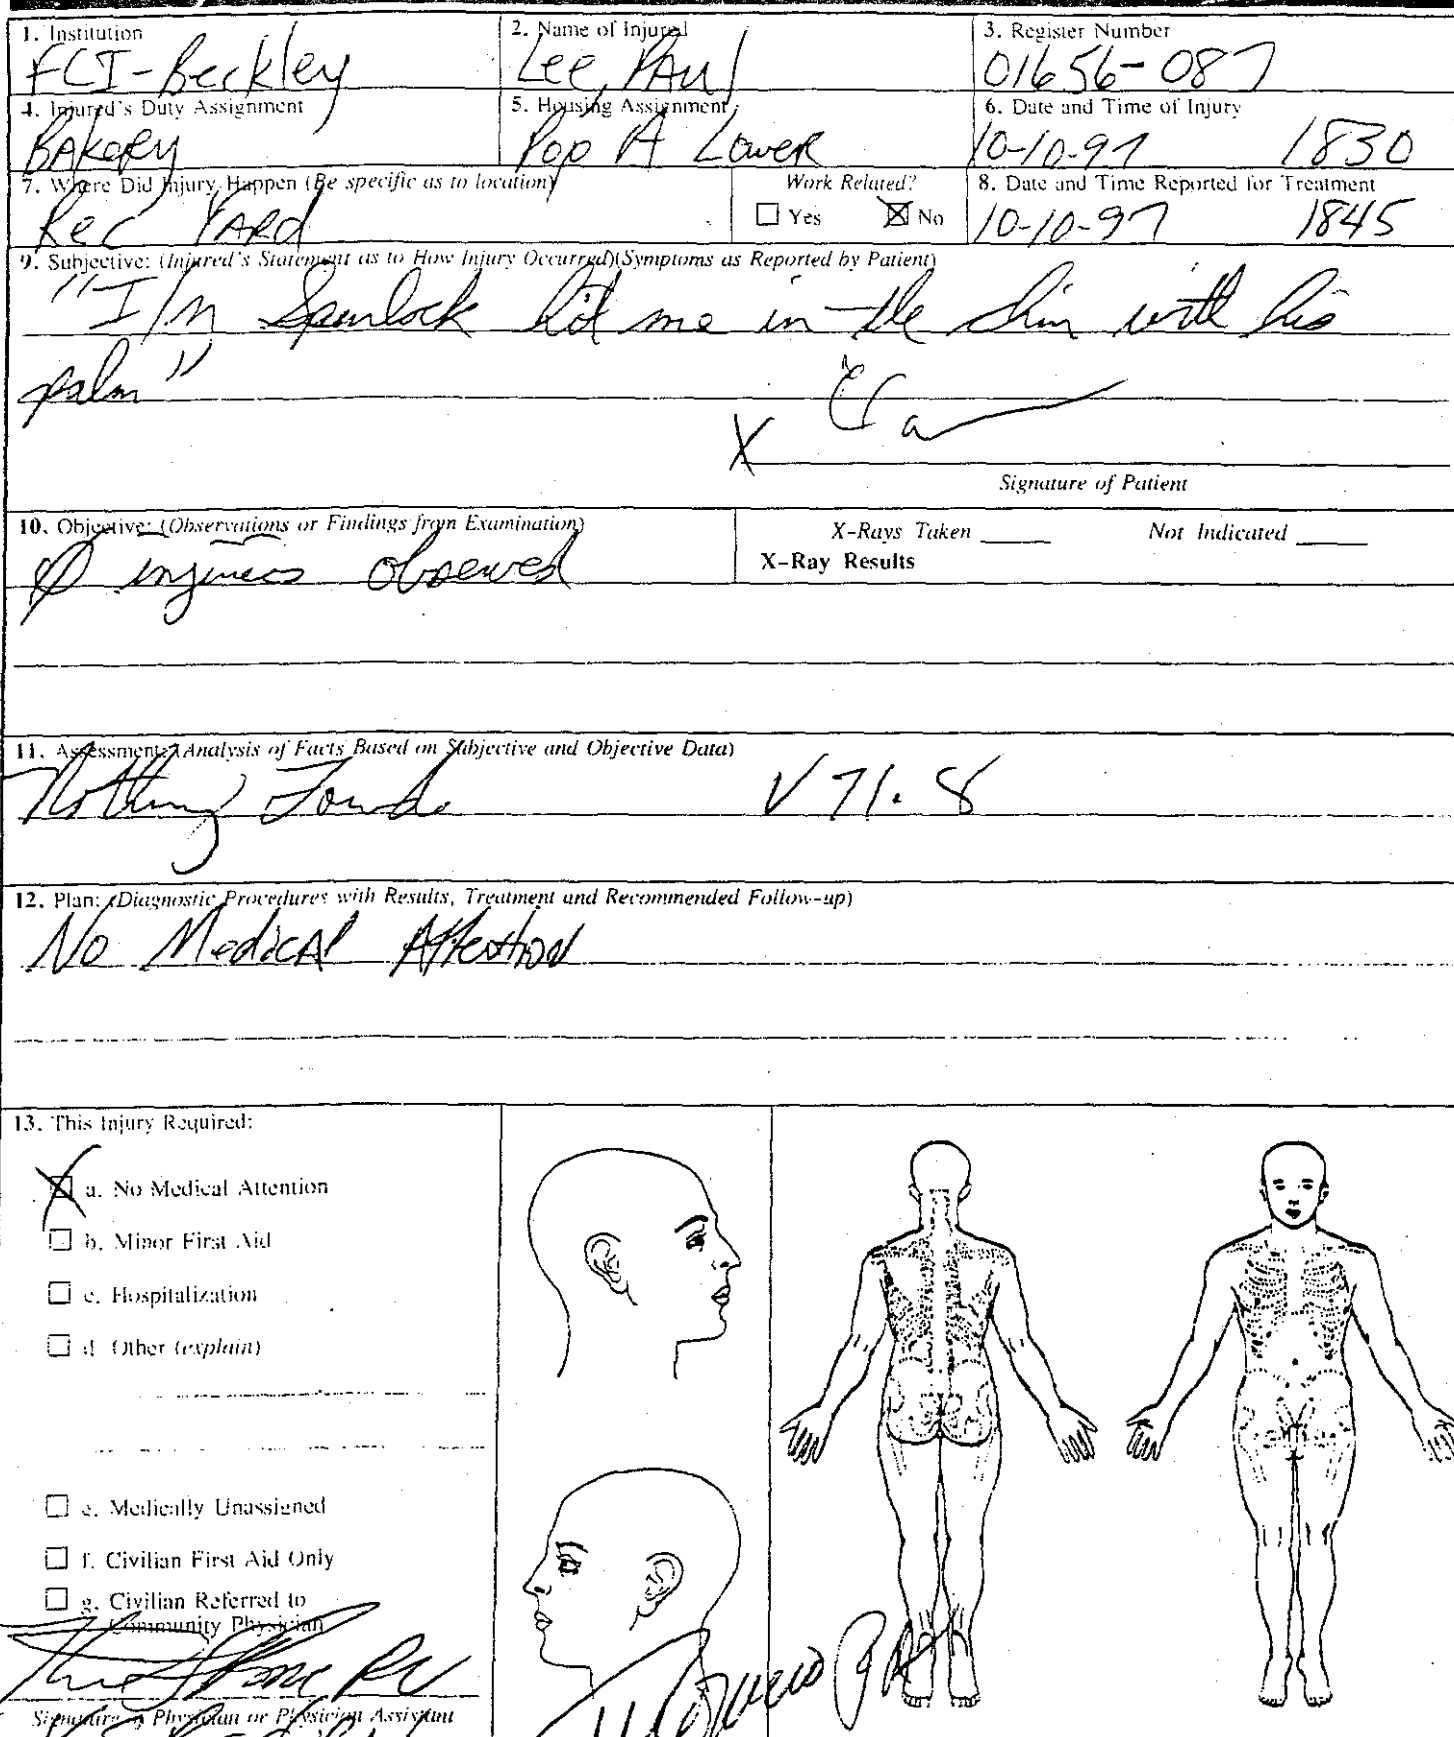 1. Institution
FCI-Beckley
2. Name of Injured
Lee, PAul
3. Register Number
01656-087
4. Injured's Duty Assignment
BAKERY
5. Housing Assignment
Pop A Lower
6. Date and Time of Injury
10-10-97 1830
7. Where Did Injury Happen (Be specific as to location)
Rec YARd
Work Related?
Yes No
8. Date and Time Reported for Treatment
10-10-97 1845
9. Subjective: (Injured's Statement as to How Injury Occurred)(Symptoms as Reported by Patient)
"I/M Spurlock hit me in the chin with his
palm"
X
Signature of Patient
10. Objective: (Observations or Findings from Examination)
Ø injuries observed
X-Rays Taken ____ Not Indicated ____
X-Ray Results
11. Assessment: (Analysis of Facts Based on Subjective and Objective Data)
Nothing Found V71.8
12. Plan: (Diagnostic Procedures with Results, Treatment and Recommended Follow-up)
No Medical Attention
13. This Injury Required:
a. No Medical Attention
b. Minor First Aid
c. Hospitalization
d. Other (explain)
e. Medically Unassigned
f. Civilian First Aid Only
g. Civilian Referred to
Community Physician
Signature of Physician or Physician Assistant